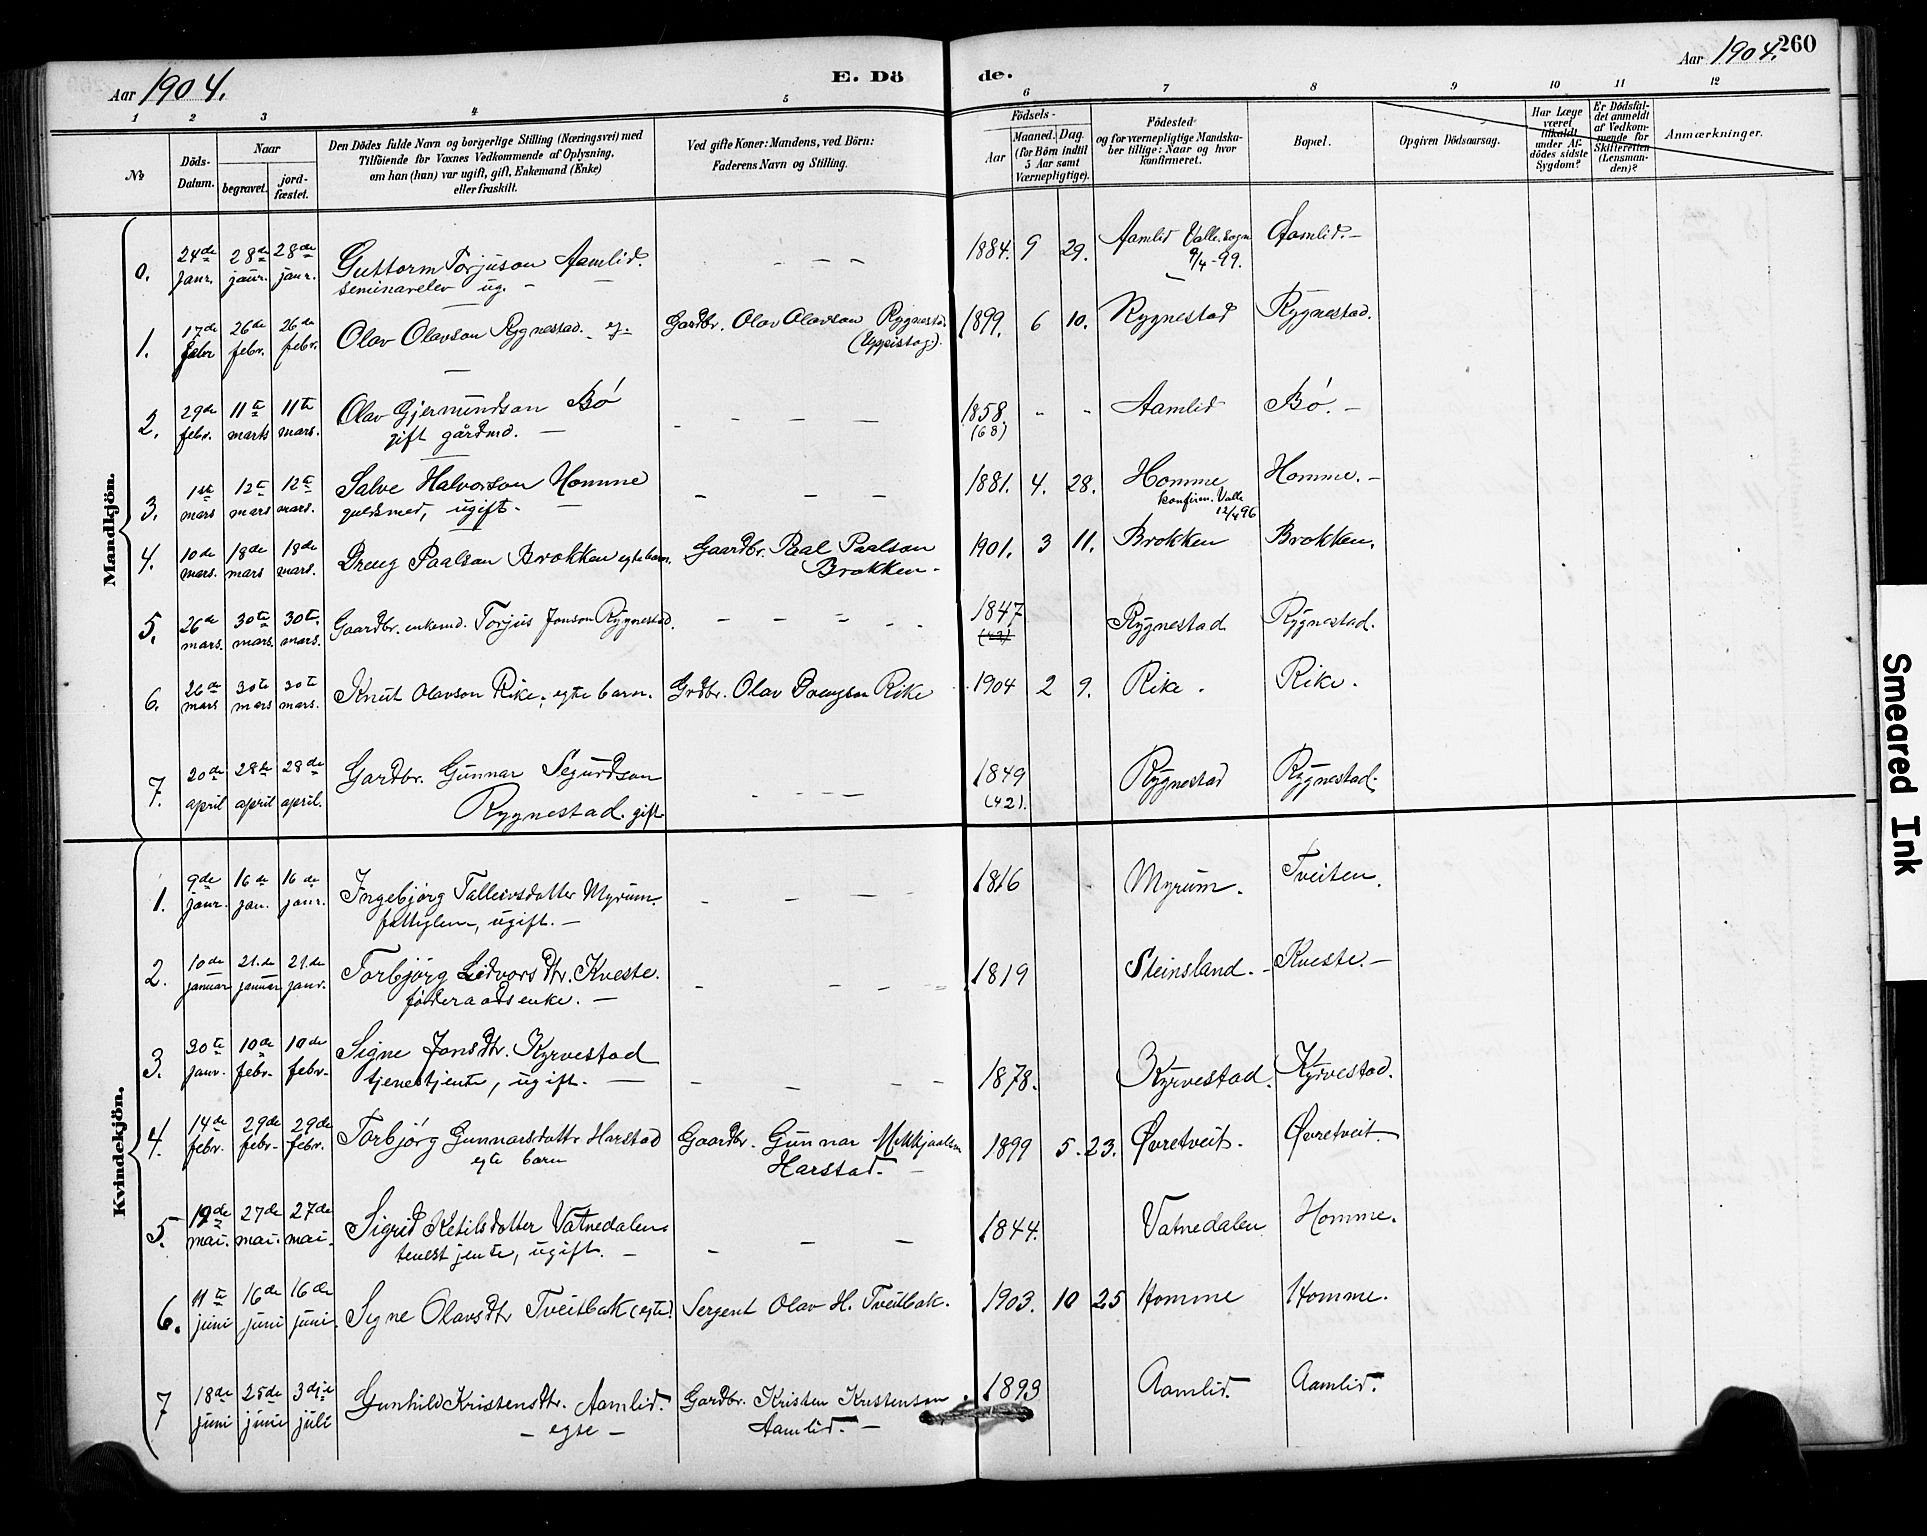 Aar 1904.
E. Dö
de.
Aar 1904.
260
1 2 3 4 5 6 7 8 9 10 11 12
No
Döds-Datum.
Naar
begravet.
jord-fæstet.
Den Dödes fulde Navn og borgerlige Stilling (Næringsvei) med
Tilföiende for Voxnes Vedkommende af Oplysning,
om han (hun) var ugift, gift, Enkemand (Enke)
eller fraskilt.
Ved gifte Koner: Mandens, ved Börn:
Faderens Navn og Stilling.
Födsels-
Aar
Maaned. Dag.
(for Börn indtil
5 Aar samt
Værnepligtige).
Födested
og for værnepligtige Mandska-
ber tillige: Naar og hvor
konfirmeret.
Bopæl.
Opgiven Dödsaarsag.
Har Læge
været
tilkaldt
under Af-
dödes sidste
Sygdom?
Er Dödsfal-
det anmeldt
af Vedkom-
mende for
Skifteretten
(Lensman-
den)?
Anmærkninger.
Mandkjön.
0. 24de janr. 28de janr. 28de janr. Guttorm Torjuson Aamlid. - - - 1884. 9 29. Aamlid Valle sogn Aamlid. -
seminarelev ug. - 9/4-99.
1. 17de febr 26de febr. 26de febr. Olav Olavson Rygnestad. eg. Gardbr. Olav Olavson Rygnestad. 1899. 6 10. Rygnestad Rygnestad.
(Uppistog.).
2. 29de febr. 11te marts 11te mars. Olav Gjermundson Bö - - - - 1858. - - Aamlid Bö. -
gift gårdmd. - (68)
3. 1ste mars 12te mars 12te mars. Salve Halvorson Homme - - - 1881. 4. 28. Homme Homme. -
gulsmed, ugift. - konfirm. Valle
12/4 96
4. 10de mars. 18de mars 18de mars. Dreng Paalson Brokken egte barn. Gaardbr. Paal Paalson 1901. 3 11. Brokken Brokken.
Brokken -
5. 26de mars. 30te mars. 30te mars. Gaardbr. enkemd. Torjus Jonson Rygnestad. - - - - - 1847 Rygnestad Rygnestad.
6. 26de mars 30te mars 30te mars. Knut Olavson Rike, egte barn. Grdbr. Olav Drengson Rike 1904 2 9. Rike. Rike.
7. 20de april 28de april 28de april. Gardbr. Gunnar Segurdson - - - - 1849 Rygnestad Rygnestad.
Rygnestad. gift. (42).
Kvindekjön.
1. 9de janr. 16de jan. 16de janr. Ingebjörg Talleivsdatter Myrum. - - - - 1816 Myrum. Tveiten.
fattiglem, ugift. -
2. 10de januar 21.de januar 21.de janr. Torbjörg Lidvorsdtr. Kveste. - - - - 1819 Steinsland. - Kveste. -
föderaadsenke. -
3. 30te janr. 10de febr. 10de febr. Signe Jonsdtr. Kyrvestad
tjenestjente, ugift. - - - - - 1878. Kyrvestad. Kyrvestad.
4. 14de febr. 29de febr. 29de febr. Torbjörg Gunnarsdattr Harstad Gaardbr. Gunnar Mikkjaalson 1899 5. 23. Øvretveit. Øvretveit.
egte barn Harstad. -
5. 19de mai. 27de mai. 27de mai. Sigrid Ketilsdatter Vatnedalen 1844. Vatnedalen Homme.
tenestjente, ugift. - - - -
6. 11te juni 16de juni 16de juni. Signe Olavsdtr Tveitbak (egte) Sergent Olav H. Tveitbak. 1903. 10 25 Homme Homme.
7 18de juni 25de juni 3dje juli Gunhild Kristensdtr. Aamlid. Gardbr. Kristen Kristenson 1893 Aamlid. Aamlid.
- egte - Aamlid. -
Smeared Ink